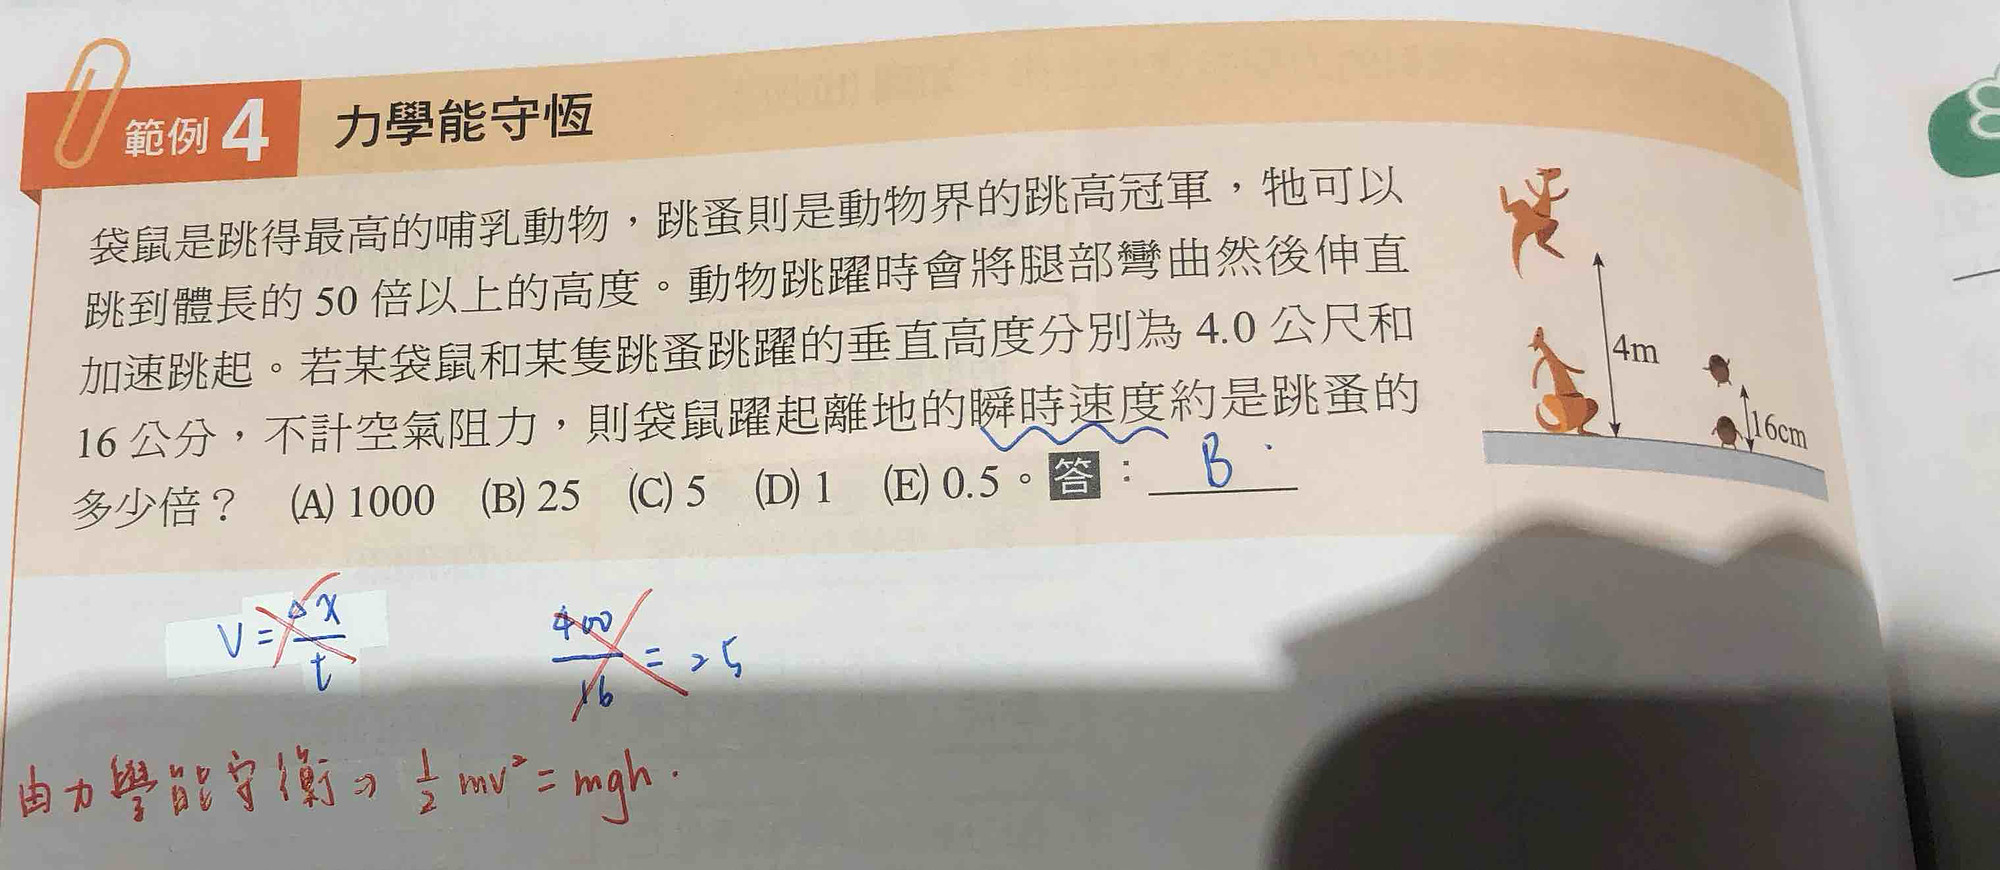 範例 4 力學能守恆
袋鼠是跳得最高的哺乳動物，跳蚤則是動物界的跳高冠軍，牠可以
跳到體長的 50 倍以上的高度。動物跳躍時會將腿部彎曲然後伸直
加速跳起。若某袋鼠和某隻跳蚤跳躍的垂直高度分別為 4.0 公尺和
16 公分，不計空氣阻力，則袋鼠躍起離地的瞬時速度約是跳蚤的
多少倍？ (A) 1000 (B) 25 (C) 5 (D) 1 (E) 0.5。答：B
4m
16cm
V = Δx/t
400/16 = 25
由力學能守衡⇒ 1/2 mv² = mgh.